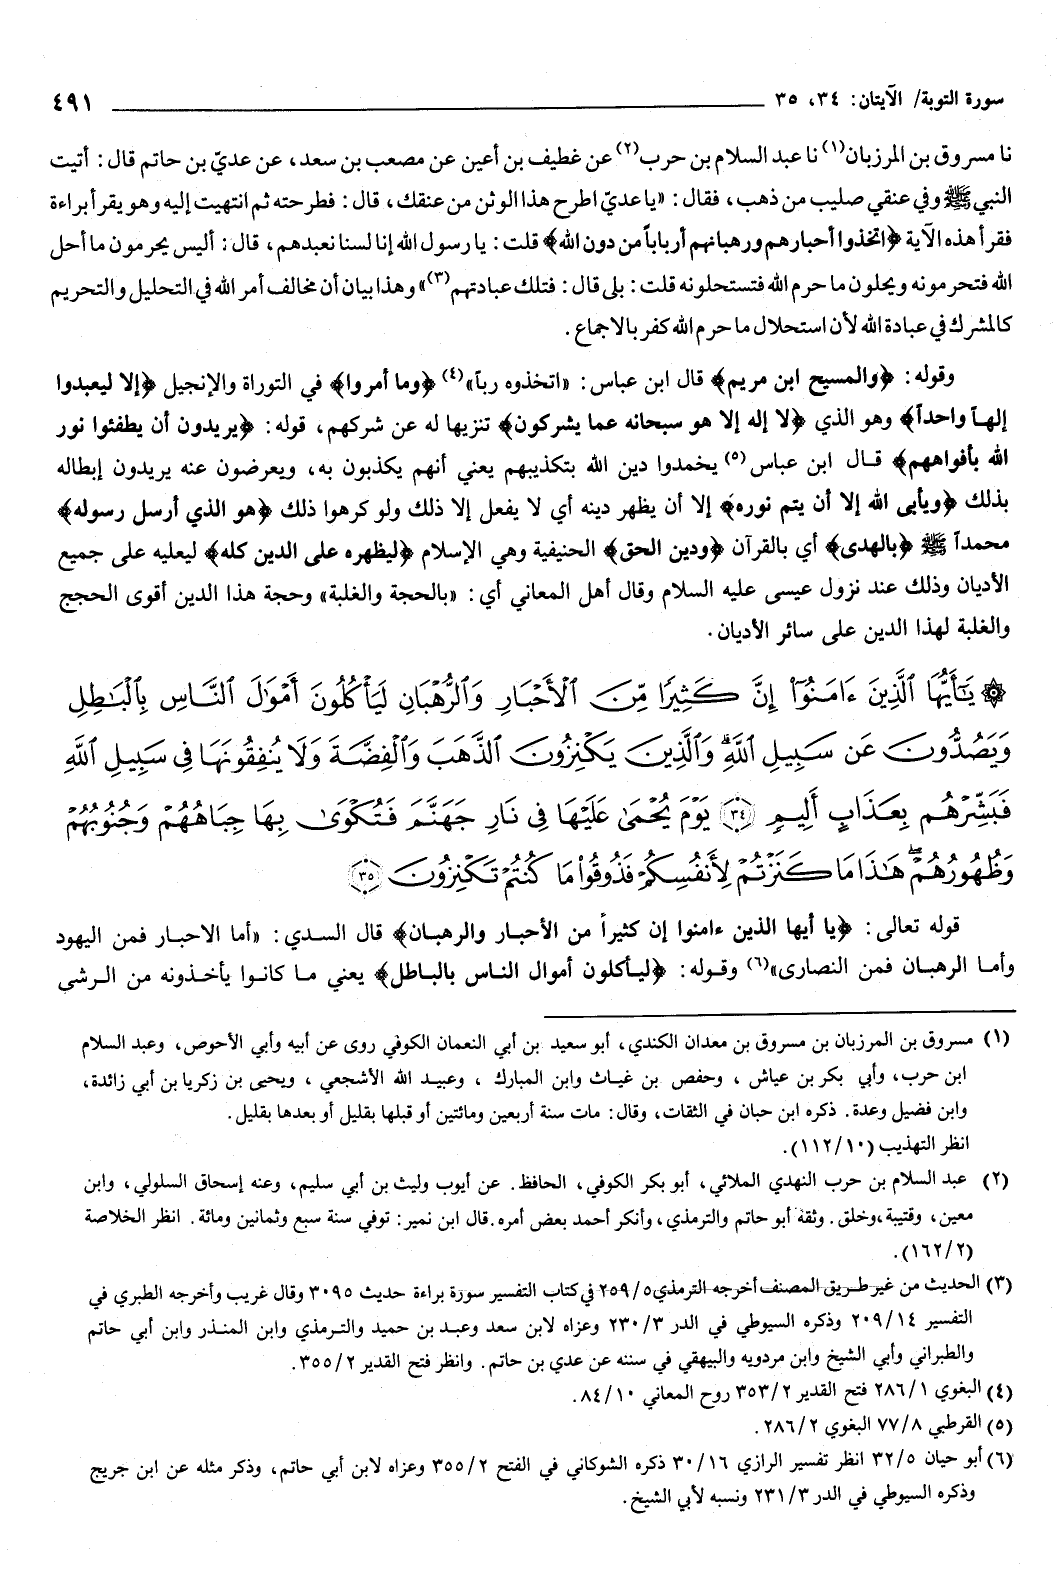 سورة التوبة/ الآيتان: ٣٤، ٣٥ ٤٩١
نا مسروق بن المرزبان(١) نا عبد السلام بن حرب(٢) عن غطيف بن أعين عن مصعب بن سعد، عن عديّ بن حاتم قال: أتيت
النبي ﷺ وفي عنقي صليب من ذهب، فقال: «يا عديّ اطرح هذا الوثن من عنقك، قال: فطرحته ثم انتهيت إليه وهو يقرأ براءة
فقرأ هذه الآية ﴿اتخذوا أحبارهم ورهبانهم أرباباً من دون الله﴾ قلت: يا رسول الله إنا لسنا نعبدهم، قال: أليس يحرمون ما أحل
الله فتحرمونه ويحلون ما حرم الله فتستحلونه قلت: بلى قال: فتلك عبادتهم(٣)» وهذا بيان أن مخالف أمر الله في التحليل والتحريم
كالمشرك في عبادة الله لأن استحلال ما حرم الله كفر بالاجماع.
وقوله: ﴿والمسيح ابن مريم﴾ قال ابن عباس: «اتخذوه رباً»(٤) ﴿وما أمروا﴾ في التوراة والإنجيل ﴿إلا ليعبدوا
إلهاً واحداً﴾ وهو الذي ﴿لا إله إلا هو سبحانه عما يشركون﴾ تنزيها له عن شركهم، قوله: ﴿يريدون أن يطفئوا نور
الله بأفواههم﴾ قال ابن عباس(٥) يخمدوا دين الله بتكذيبهم يعني أنهم يكذبون به، ويعرضون عنه يريدون إبطاله
بذلك ﴿ويأبى الله إلا أن يتم نوره﴾ إلا أن يظهر دينه أي لا يفعل إلا ذلك ولو كرهوا ذلك ﴿هو الذي أرسل رسوله﴾
محمداً ﷺ ﴿بالهدى﴾ أي بالقرآن ﴿ودين الحق﴾ الحنيفية وهي الإسلام ﴿ليظهره على الدين كله﴾ ليعليه على جميع
الأديان وذلك عند نزول عيسى عليه السلام وقال أهل المعاني أي: «بالحجة والغلبة» وحجة هذا الدين أقوى الحجج
والغلبة لهذا الدين على سائر الأديان.
۞ يَٰٓأَيُّهَا ٱلَّذِينَ ءَامَنُوٓا۟ إِنَّ كَثِيرًا مِّنَ ٱلْأَحْبَارِ وَٱلرُّهْبَانِ لَيَأْكُلُونَ أَمْوَٰلَ ٱلنَّاسِ بِٱلْبَٰطِلِ
وَيَصُدُّونَ عَن سَبِيلِ ٱللَّهِ ۗ وَٱلَّذِينَ يَكْنِزُونَ ٱلذَّهَبَ وَٱلْفِضَّةَ وَلَا يُنفِقُونَهَا فِى سَبِيلِ ٱللَّهِ
فَبَشِّرْهُم بِعَذَابٍ أَلِيمٍ ٣٤ يَوْمَ يُحْمَىٰ عَلَيْهَا فِى نَارِ جَهَنَّمَ فَتُكْوَىٰ بِهَا جِبَاهُهُمْ وَجُنُوبُهُمْ
وَظُهُورُهُمْ ۖ هَٰذَا مَا كَنَزْتُمْ لِأَنفُسِكُمْ فَذُوقُوا۟ مَا كُنتُمْ تَكْنِزُونَ ٣٥
قوله تعالى: ﴿يا أيها الذين ءامنوا إن كثيراً من الأحبار والرهبان﴾ قال السدي: «أما الاحبار فمن اليهود
وأما الرهبان فمن النصارى»(٦) وقوله: ﴿ليأكلون أموال الناس بالباطل﴾ يعني ما كانوا يأخذونه من الرشى
(١) مسروق بن المرزبان بن مسروق بن معدان الكندي، أبو سعيد بن أبي النعمان الكوفي روى عن أبيه وأبي الأحوص، وعبد السلام
ابن حرب، وأبي بكر بن عياش، وحفص بن غياث وابن المبارك، وعبيد الله الأشجعي، ويحيى بن زكريا بن أبي زائدة،
وابن فضيل وعدة. ذكره ابن حبان في الثقات، وقال: مات سنة أربعين ومائتين أو قبلها بقليل أو بعدها بقليل.
انظر التهذيب (١١٢/١٠).
(٢) عبد السلام بن حرب النهدي الملائي، أبو بكر الكوفي، الحافظ. عن أيوب وليث بن أبي سليم، وعنه إسحاق السلولي، وابن
معين، وقتيبة، وخلق. وثقه أبو حاتم والترمذي، وأنكر أحمد بعض أمره. قال ابن نمير: توفي سنة سبع وثمانين ومائة. انظر الخلاصة
(١٦٢/٢).
(٣) الحديث من غير طريق المصنف أخرجه الترمذي ٢٥٩/٥ في كتاب التفسير سورة براءة حديث ٣٠٩٥ وقال غريب وأخرجه الطبري في
التفسير ٢٠٩/١٤ وذكره السيوطي في الدر ٢٣٠/٣ وعزاه لابن سعد وعبد بن حميد والترمذي وابن المنذر وابن أبي حاتم
والطبراني وأبي الشيخ وابن مردويه والبيهقي في سننه عن عدي بن حاتم. وانظر فتح القدير ٣٥٥/٢.
(٤) البغوي ٢٨٦/١ فتح القدير ٣٥٣/٢ روح المعاني ٨٤/١٠.
(٥) القرطبي ٧٧/٨ البغوي ٢٨٦/٢.
(٦) أبو حيان ٣٢/٥ انظر تفسير الرازي ٣٠/١٦ ذكره الشوكاني في الفتح ٣٥٥/٢ وعزاه لابن أبي حاتم، وذكر مثله عن ابن جريج
وذكره السيوطي في الدر ٢٣١/٣ ونسبه لأبي الشيخ.